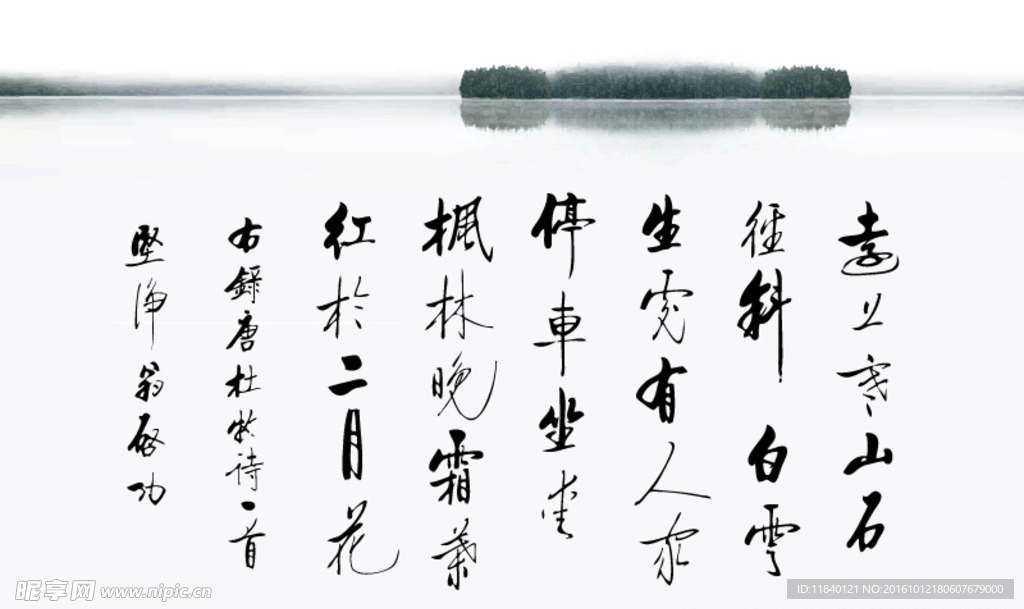 遠上寒山石
徑斜白雲
生處有人家
停車坐愛
楓林晚霜葉
紅於二月花
右錄唐杜牧诗一首
堅浄翁啟功
昵享网 www.nipic.cn
ID:11840121 NO:20161012180607679000